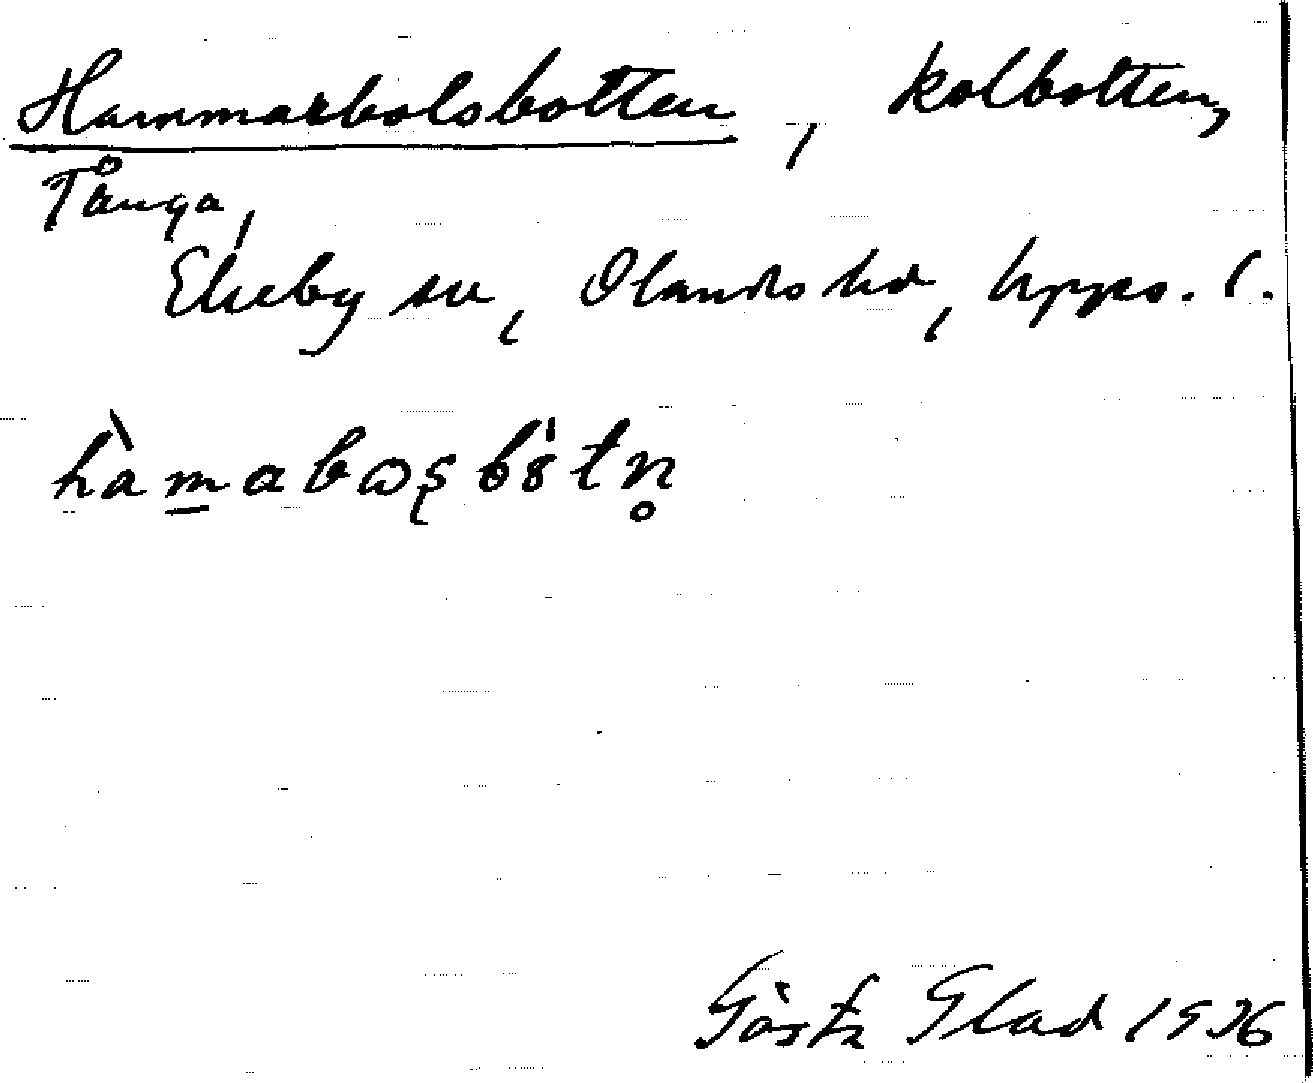 Hammarbolsbotten, kolbotten,
Tånga,
Ekeby sn, Olands hd, Upps. l.
hàmabɷʂbòtn̥
Gösta Glad 1936